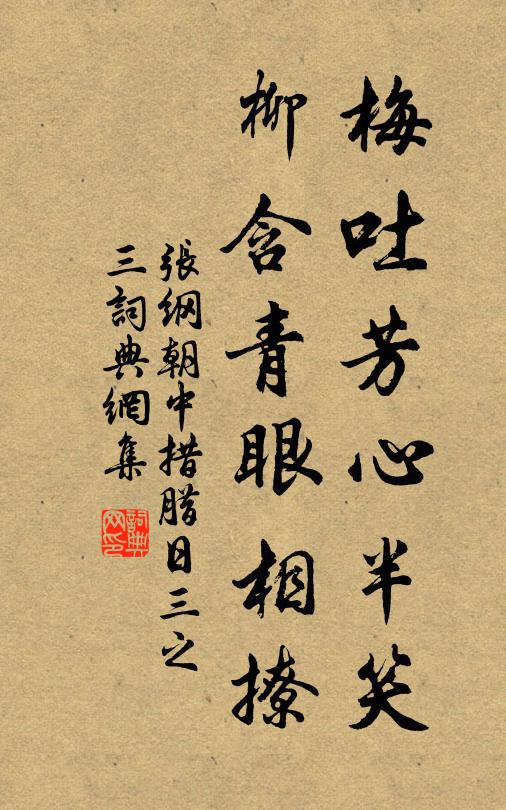 梅吐芳心半笑
柳含青眼相撩
張綱朝中措腊日三之
三詞典網集
詞典网印